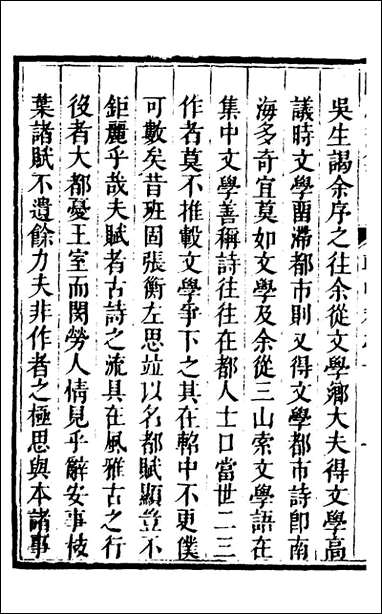 吳生謁余序之往余從文學鄉大夫得文學高
議時文學留滯都市則又得文學都市詩卽南
海多奇宜莫如文學及余從三山索文學語在
集中文學善稱詩往往在都人士口當世二三
作者莫不推轂文學爭下之其在輅中不更僕
可數矣昔班固張衡左思竝以名都賦顯豈不
鉅麗乎哉夫賦者古詩之流具在風雅古之行
役者大都憂王室而閔勞人情見乎辭安事枝
葉諸賦不遺餘力夫非作者之極思與本諸事